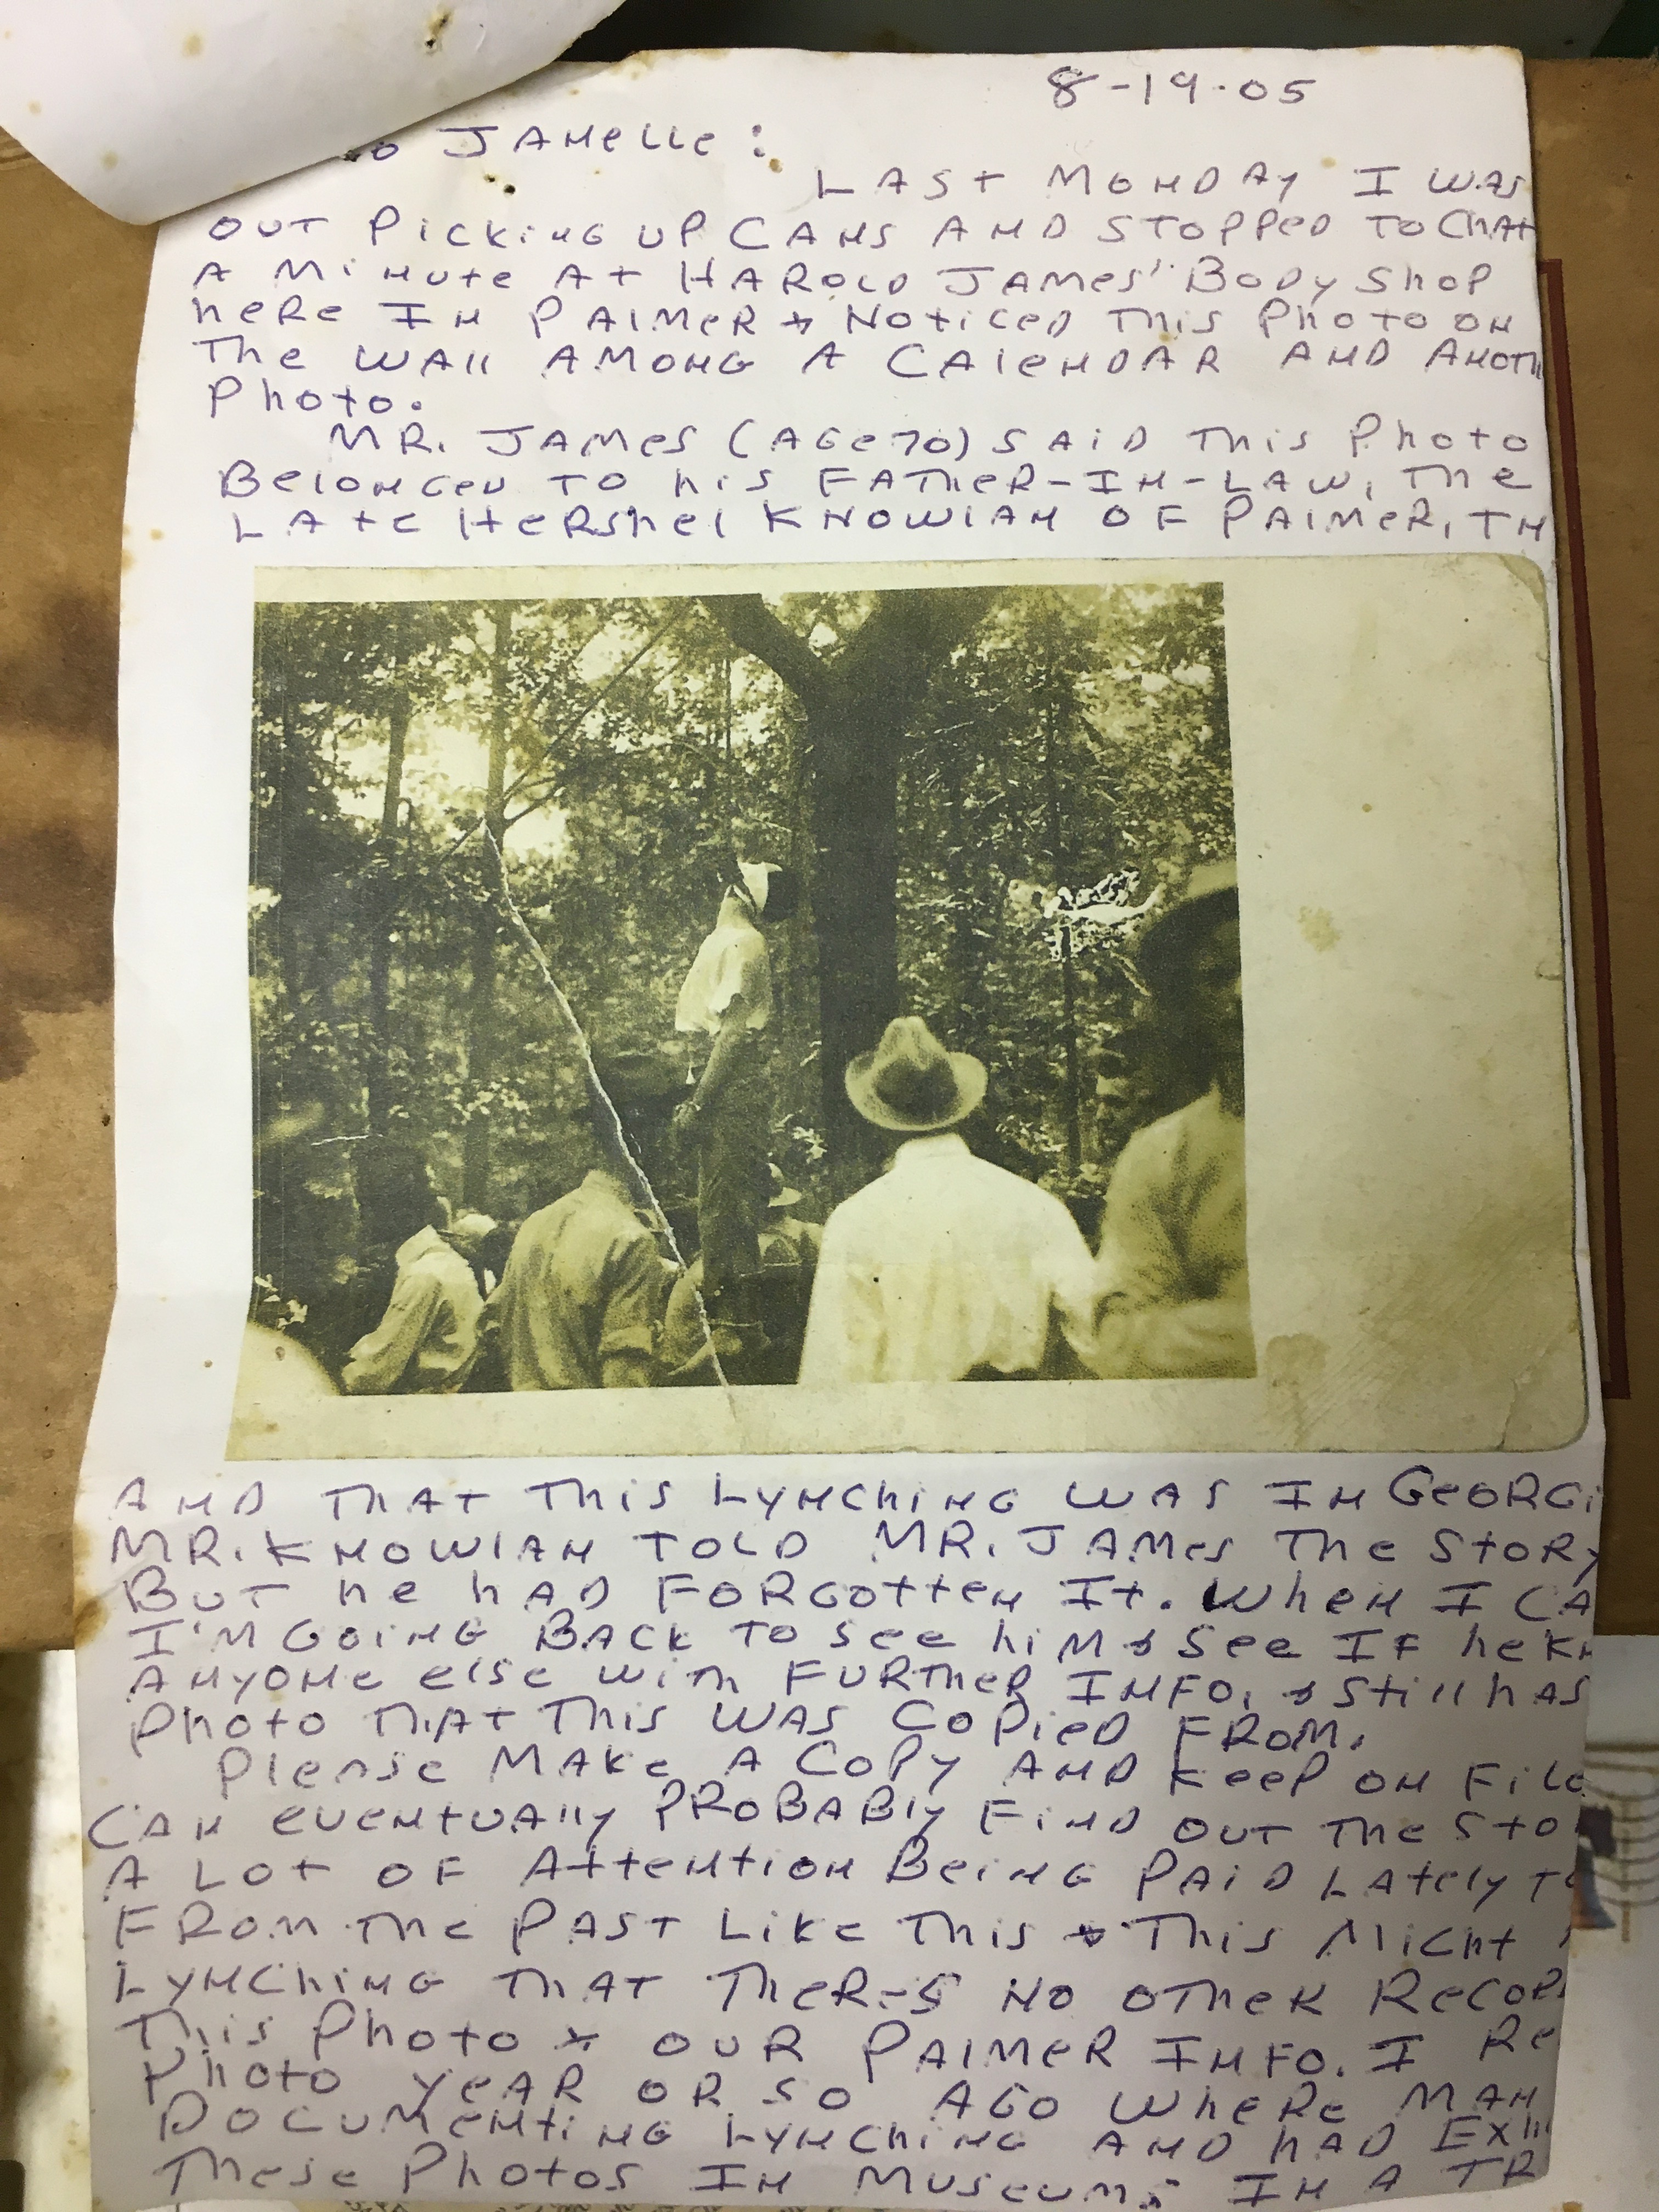 8-19-05
o JANELLE:
LAST MONDAY I WAS
OUT PICKING UP CANS AND STOPPED TO CHAT
A MINUTE AT HAROLD JAMES' BODY SHOP
HERE IN PALMER & NOTICED THIS PHOTO ON
THE WALL AMONG A CALENDAR AND ANOTH
PHOTO.
MR. JAMES (AGE 70) SAID THIS PHOTO
BELONGED TO HIS FATHER-IN-LAW, THE
LATE HERSHEL KNOWLAN OF PALMER, TN
AND THAT THIS LYNCHING WAS IN GEORGI
MR. KNOWLAN TOLD MR. JAMES THE STORY
BUT HE HAD FORGOTTEN IT. WHEN I CA
I'M GOING BACK TO SEE HIM & SEE IF HE KN
ANYONE ELSE WITH FURTHER INFO, & STILL HAS
PHOTO THAT THIS WAS COPIED FROM.
PLEASE MAKE A COPY AND KEEP ON FILE
CAN EVENTUALLY PROBABLY FIND OUT THE STO
A LOT OF ATTENTION BEING PAID LATELY TO
FROM THE PAST LIKE THIS & THIS MIGHT
LYNCHING THAT THERE'S NO OTHER RECOR
THIS PHOTO & OUR PALMER INFO. I RE
PHOTO YEAR OR SO AGO WHERE MAN
DOCUMENTING LYNCHING AND HAD EXHI
THESE PHOTOS IN MUSEUMS IN A TR